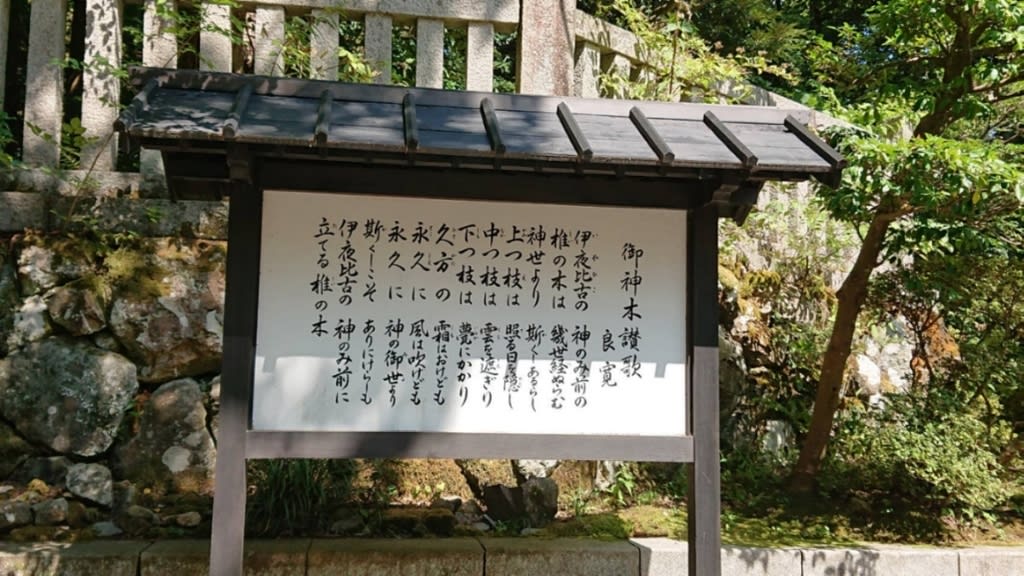 御神木讃歌
良寛
伊夜比古の 神のみ前の
椎の木は 幾世経ぬらむ
神世より 斯くあるらし
上つ枝は 照る日を隠し
中つ枝は 雲を遮ぎり
下つ枝は 甍にかかり
久方の 霜はおけども
永久に 風は吹けども
永久に 神の御世より
斯くこそ ありにけらしも
伊夜比古の 神のみ前に
立てる椎の木